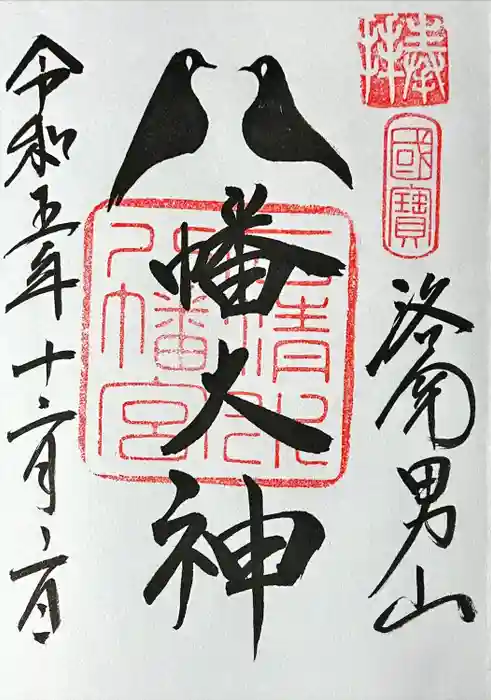 奉拝
國寶
洛南男山
八幡大神
石清水
八幡宮
令和五年十二月二日